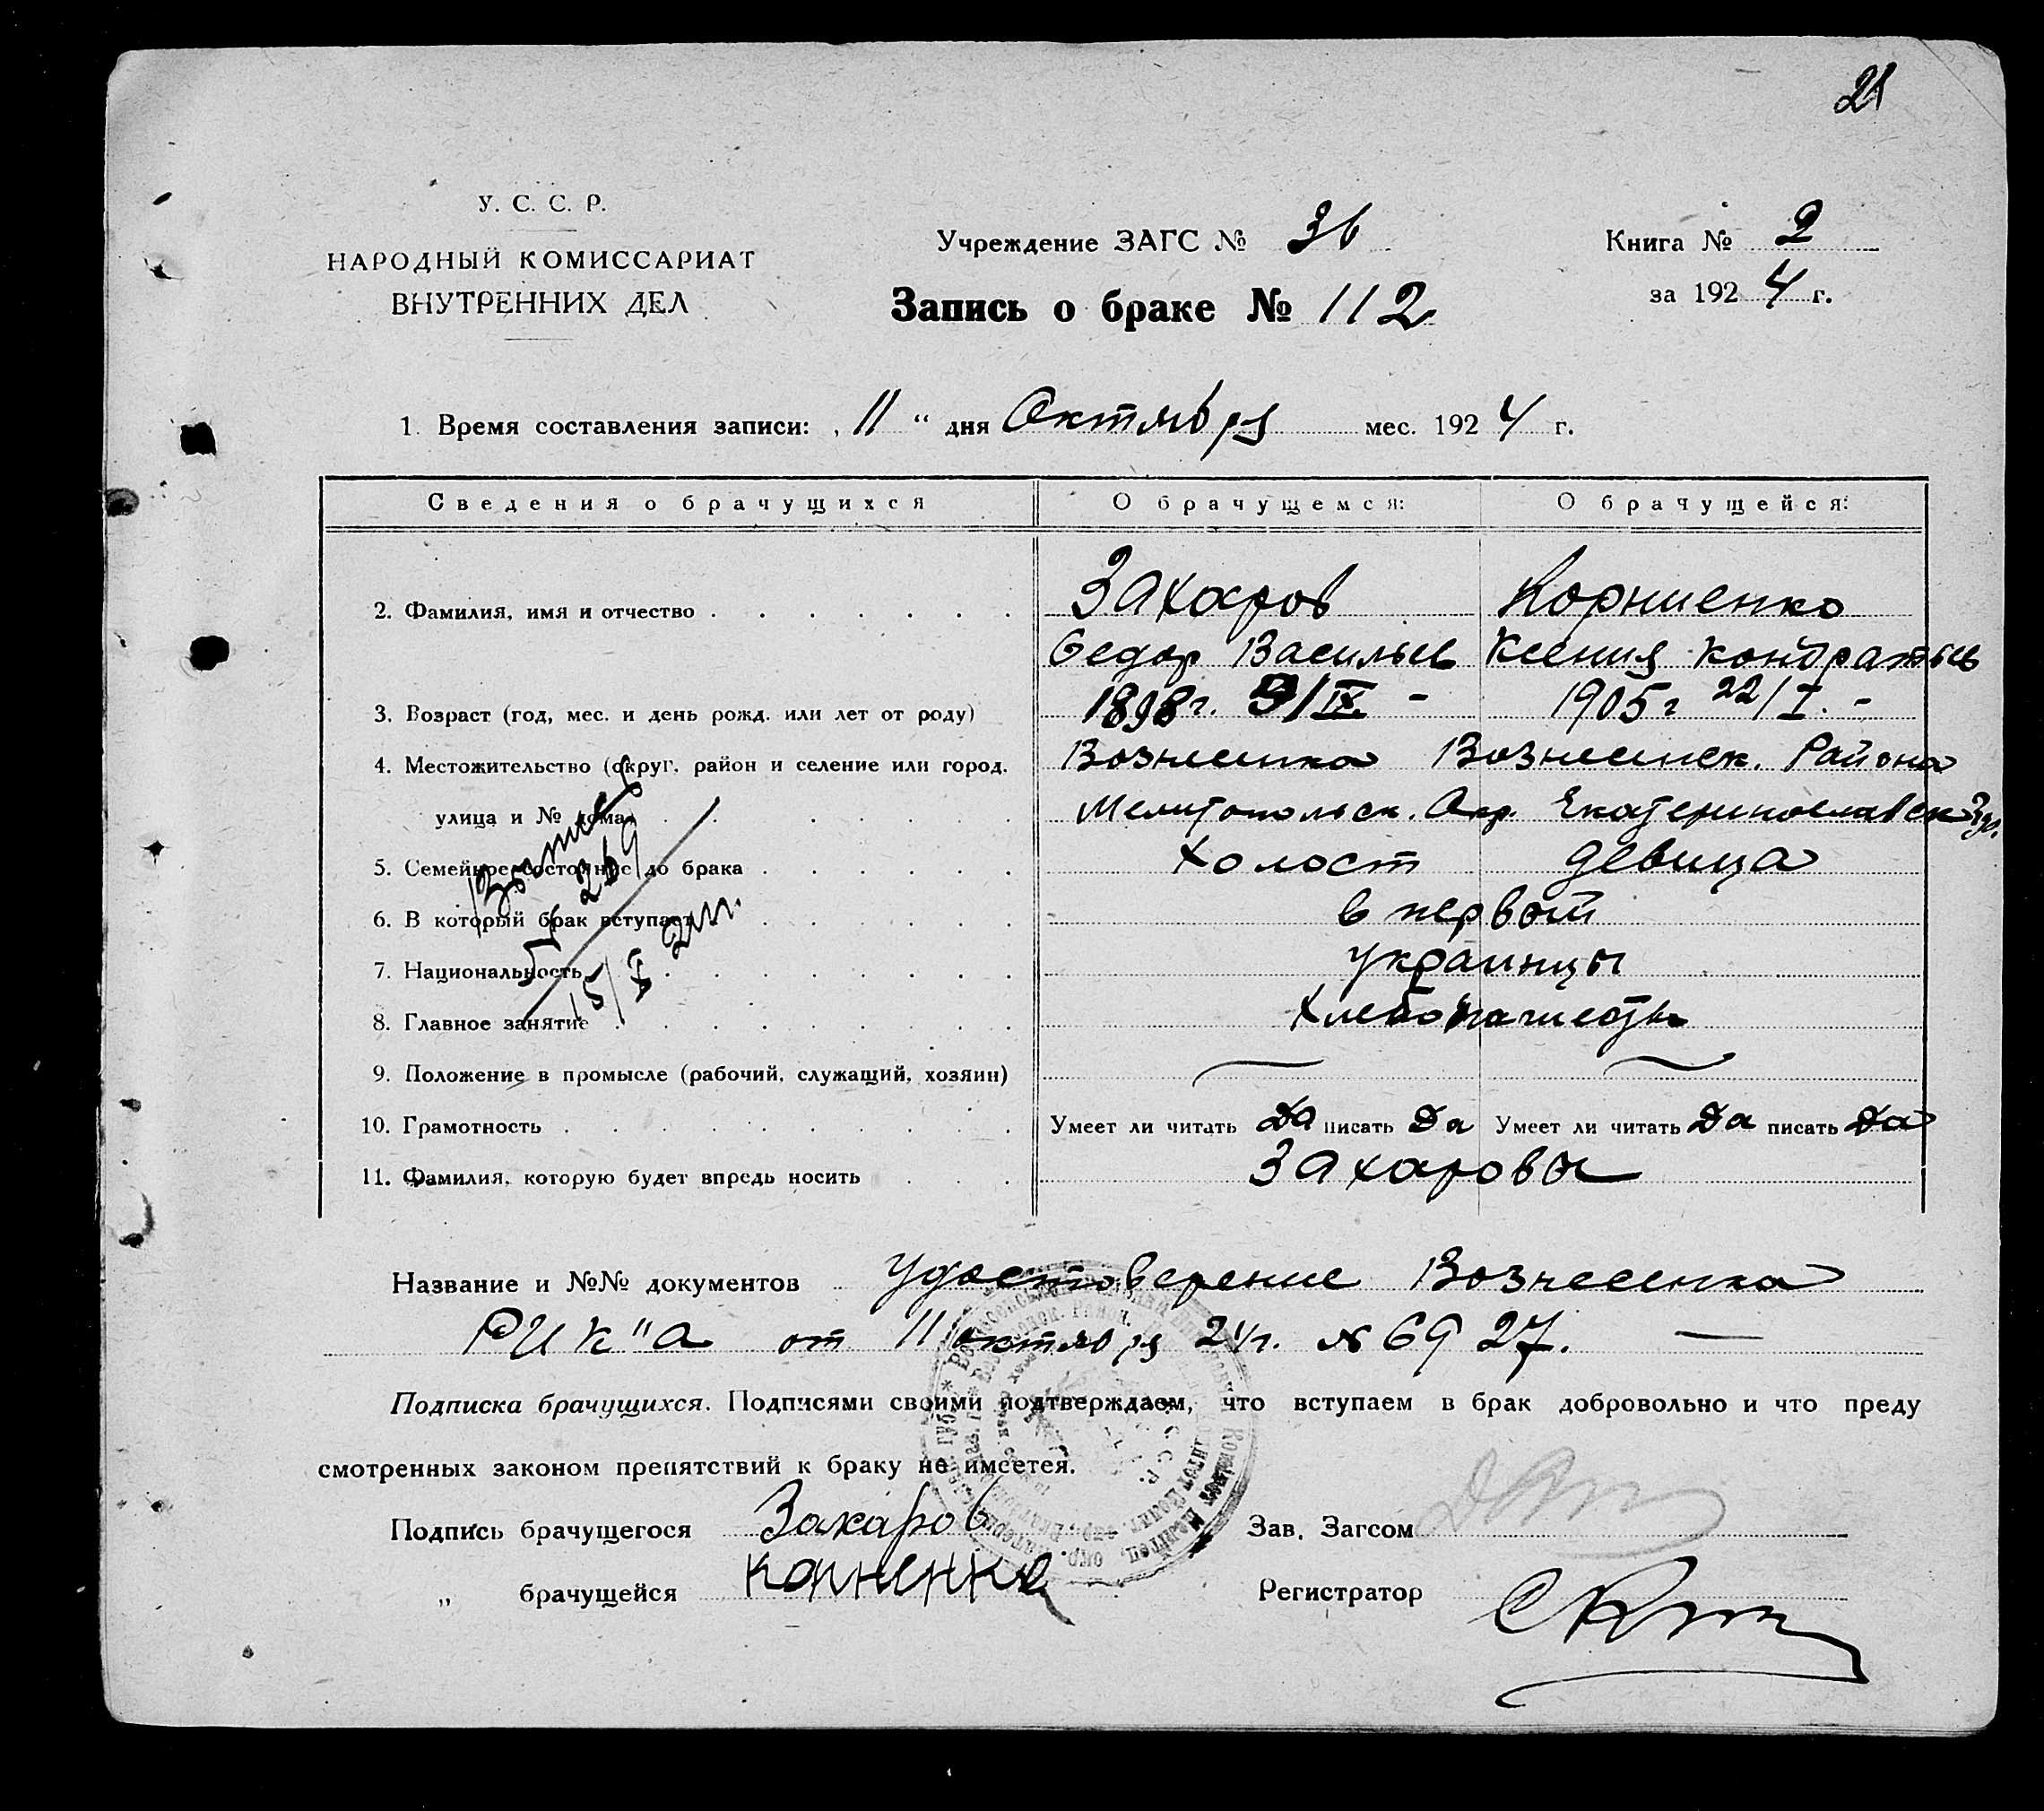 21
У. С. С. Р.
НАРОДНЫЙ КОМИССАРИАТ
ВНУТРЕННИХ ДЕЛ
Учреждение ЗАГС № 36
Книга № 2
Запись о браке № 112
за 1924 г.
1. Время составления записи: „11“ дня Октября мес. 1924 г.
Сведения о брачущихся О брачущемся: О брачущейся:
2. Фамилия, имя и отчество Захаров Корниенко
Федор Васильев Ксения Кондратьев
3. Возраст (год, мес. и день рожд. или лет от роду) 1898 г. 9/IX. - 1905 г 22/I. -
4. Местожительство (округ, район и селение или город, Вознесенка Вознесенск. Района
улица и № дома) Мелитопольск. Окр. Екатеринославск Губ.
5. Семейное состояние до брака холост девица
6. В который брак вступает в первый
7. Национальность украинцы
8. Главное занятие Хлебопашество
9. Положение в промысле (рабочий, служащий, хозяин)
10. Грамотность Умеет ли читать Да писать Да Умеет ли читать Да писать Да
11. Фамилия, которую будет впредь носить Захаровы
269
15/X 24г.
Название и №№ документов Удостоверение Вознесенка
РИК"а от 11 октября 24г. № 6927. —
Подписка брачущихся. Подписями своими подтверждаем, что вступаем в брак добровольно и что преду
смотренных законом препятствий к браку не имеется.
Подпись брачущегося Захаров Зав. Загсом
„ брачущейся Корненко Регистратор